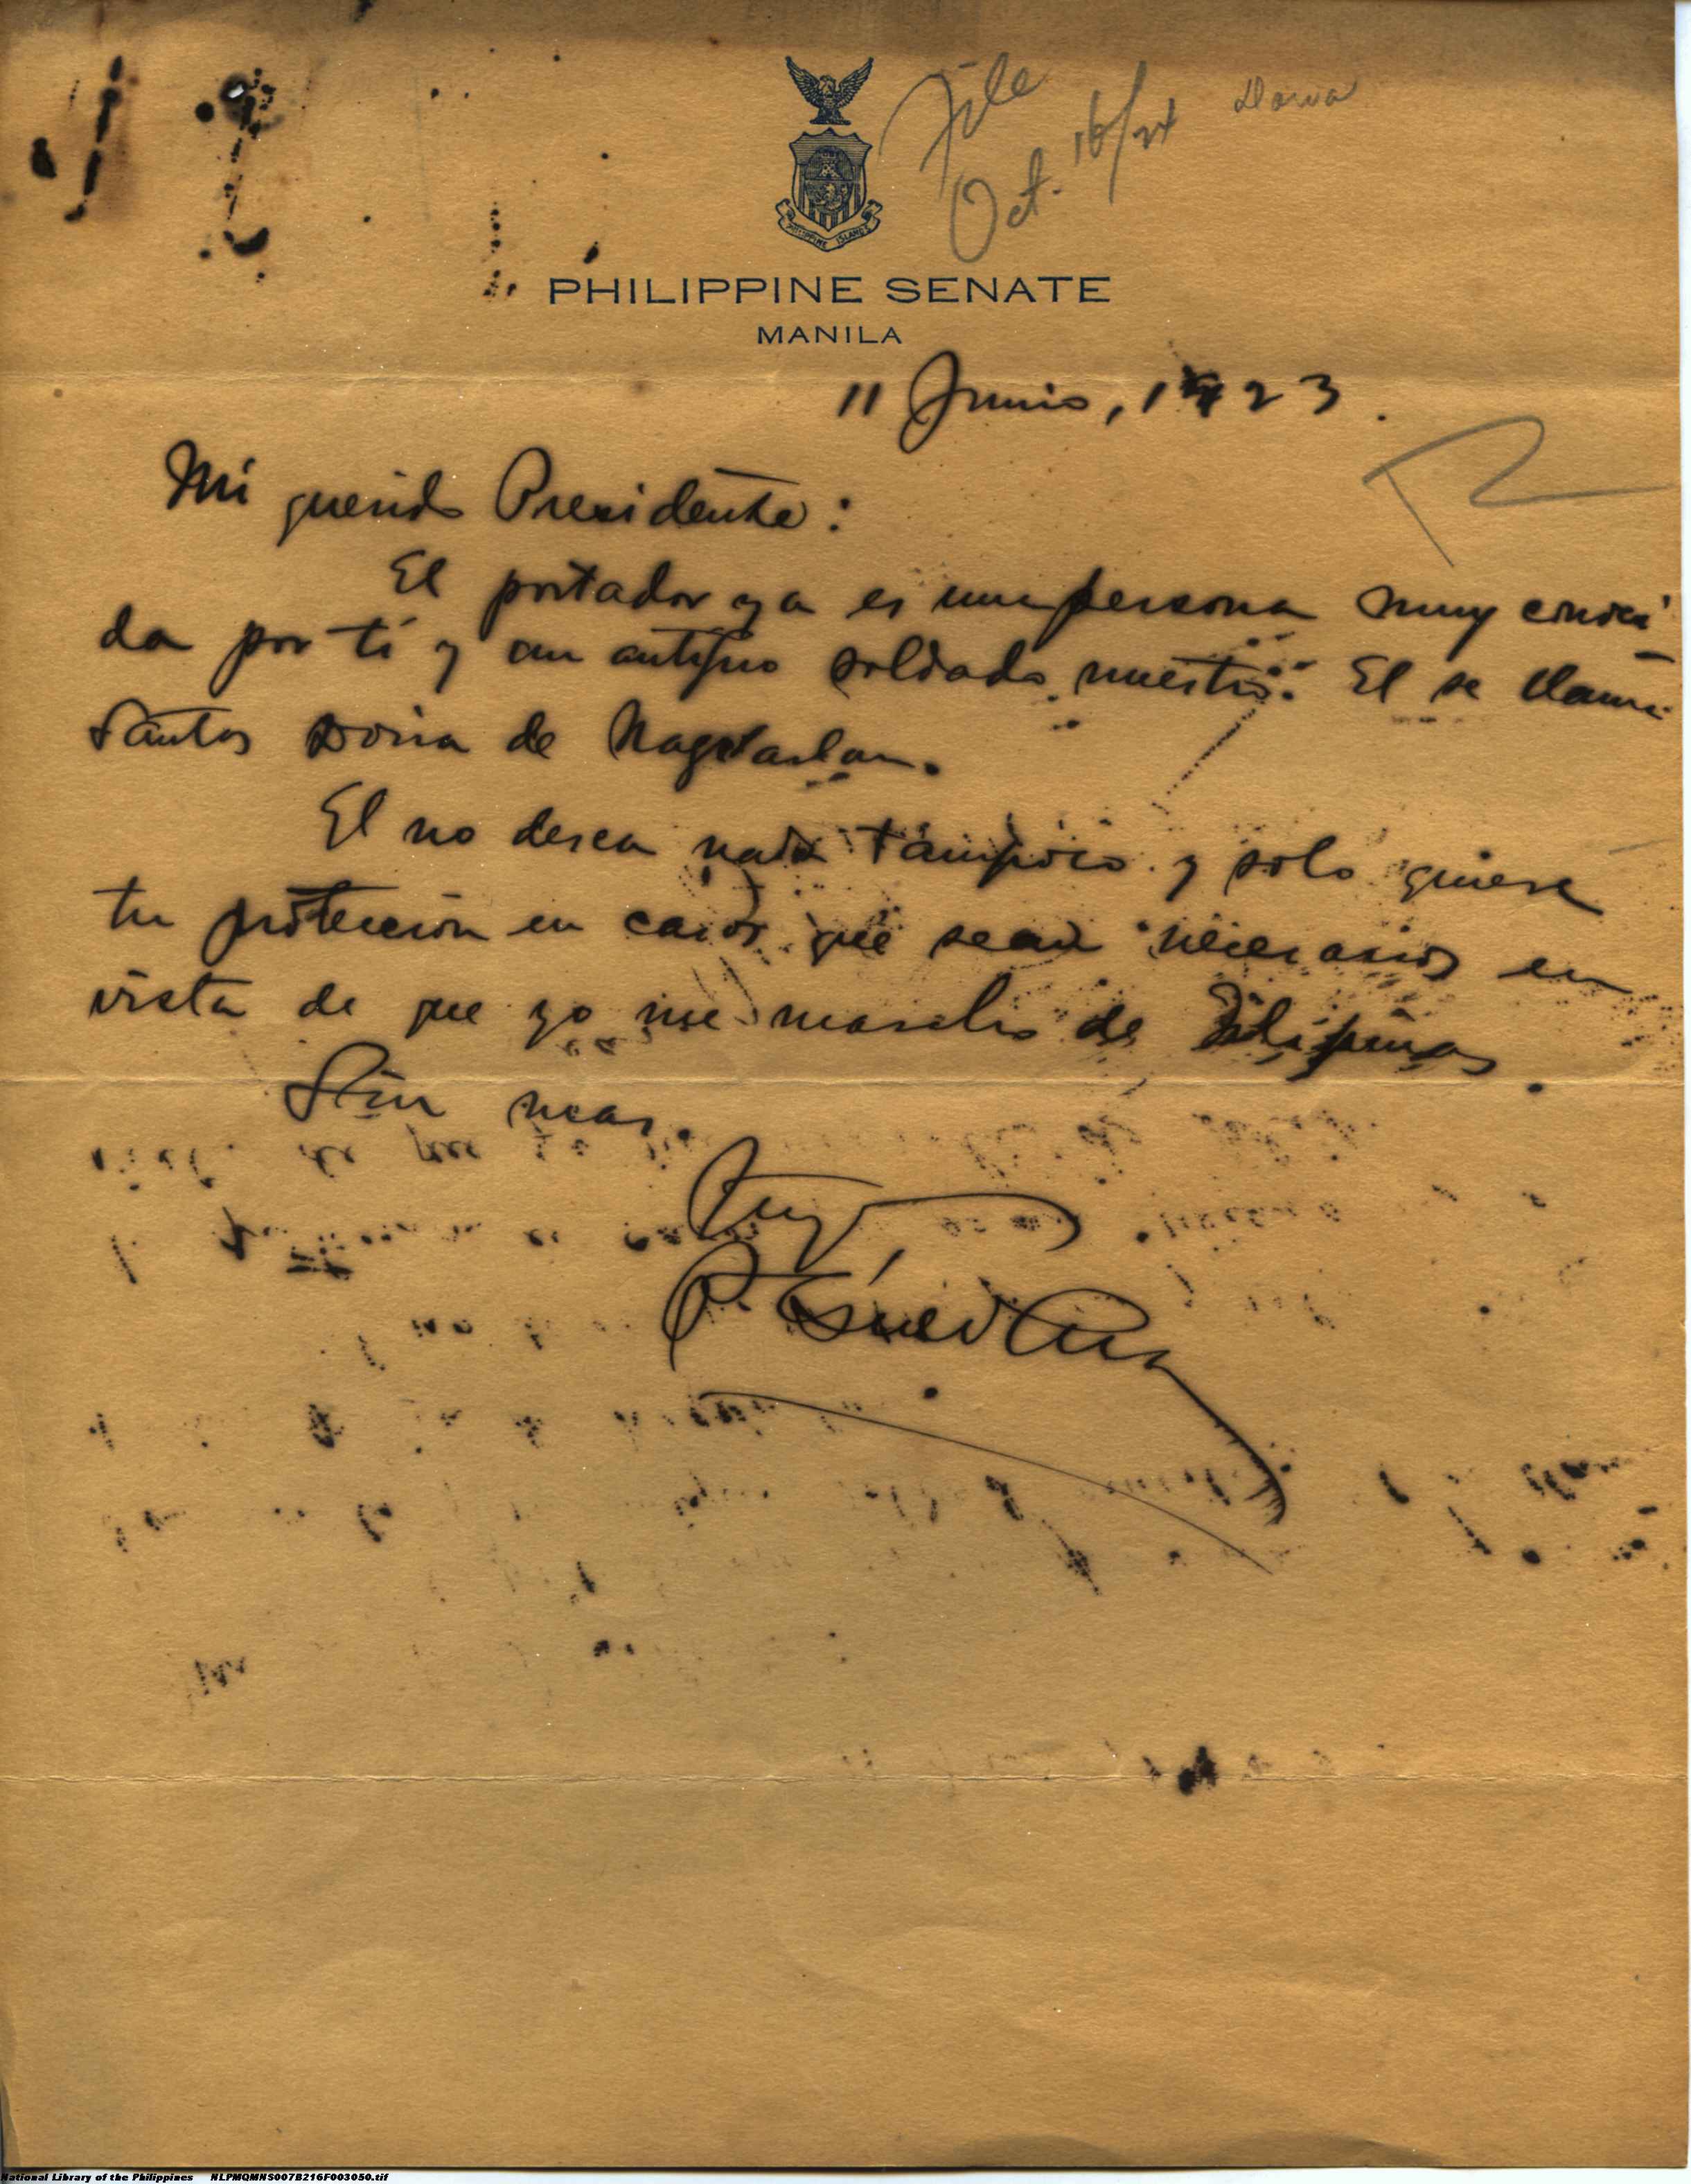 File
Oct. 16/24
PHILIPPINE ISLANDS
PHILIPPINE SENATE
MANILA
11 Junio, 1923.
Mi querido Presidente:
El portador ya es una persona muy conoci
da por ti y un antiguo soldado nuestro. El se llama
Santos de Nagcarlan.
El no desea nada tampoco y solo quiere
tu protección en casos que sean necesarios en
vista de que yo me marcho de Filipinas.
Sin mas.
Tuyo
National Library of the Philippines NLPMQMNS007B216F003050.tif